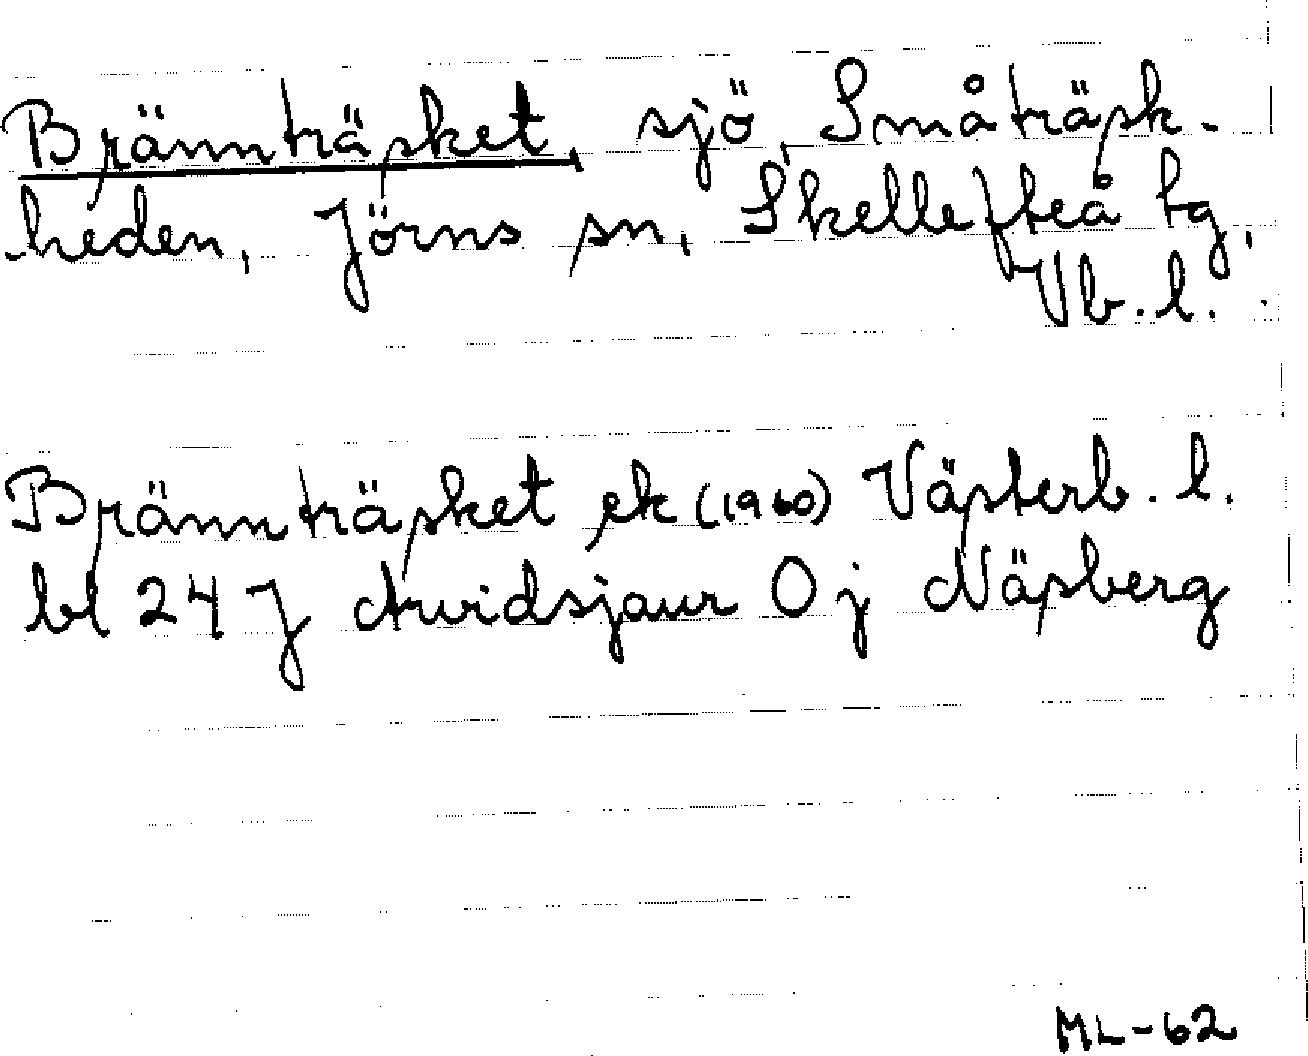 Brännträsket, sjö, Småträsk-
heden, Jörns sn, Skellefteå tg,
Vb.l.
Brännträsket ek (1960) Västerb. l.
bl 24 J Arvidsjaur O j Näsberg
ML-62